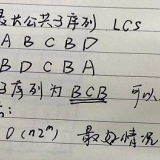 最长公共子序列 LCS
A B C B D
B D C B A
子序列为 BCB 可以
O(n2ᵐ) 最好情况